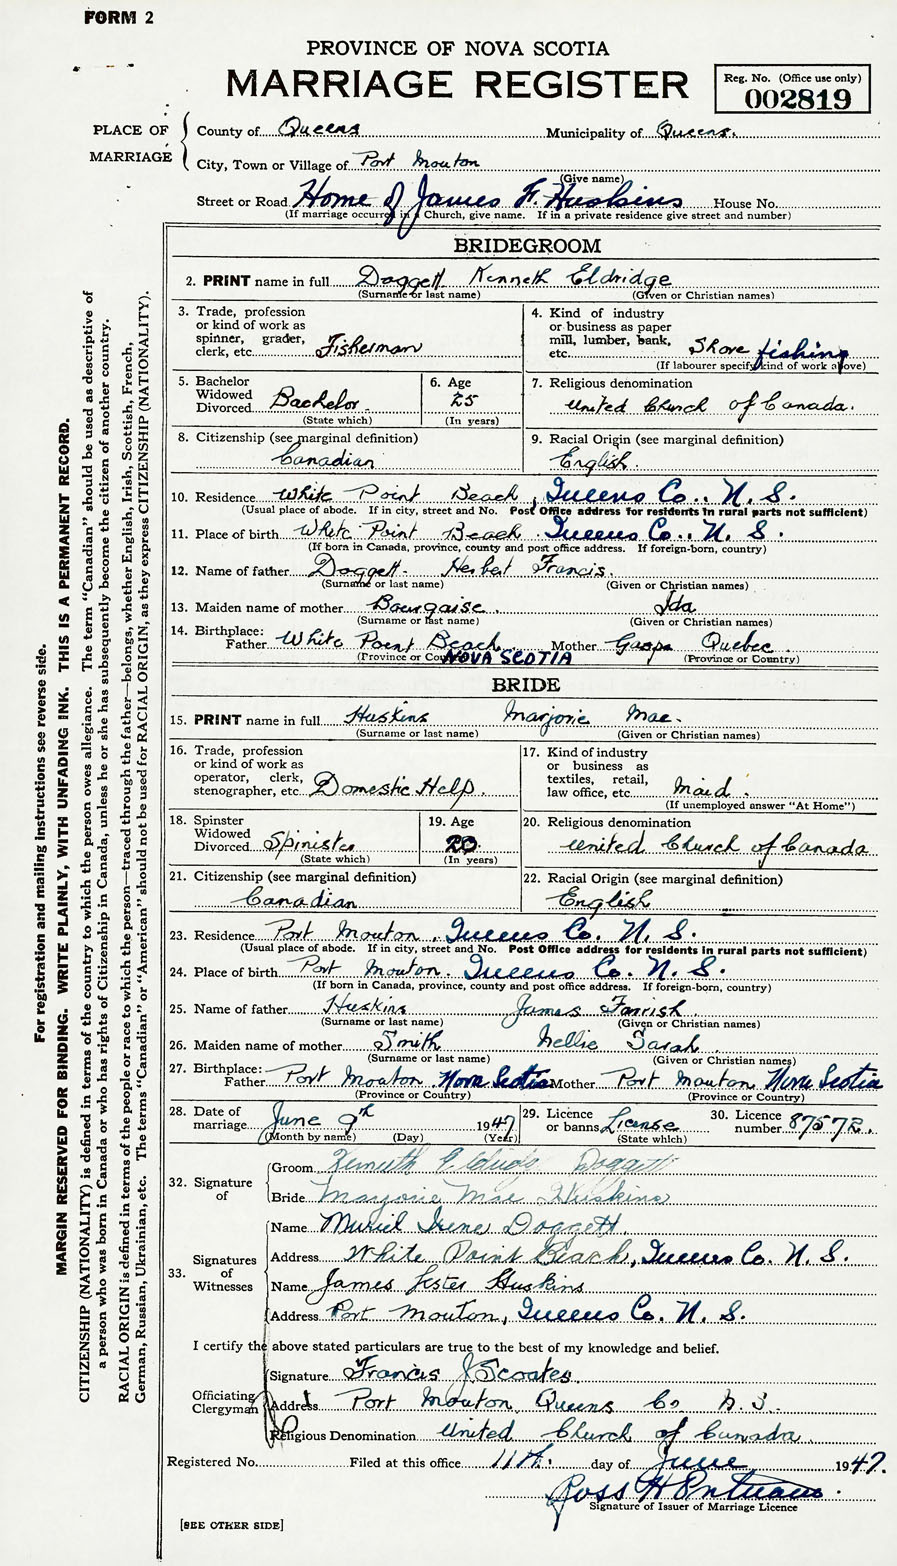 FORM 2
PROVINCE OF NOVA SCOTIA
MARRIAGE REGISTER
Reg. No. (Office use only)
002819
PLACE OF MARRIAGE
County of Queens Municipality of Queens.
City, Town or Village of Port Mouton
(Give name)
Street or Road Home of James F. Huskins House No.
(If marriage occurred in a Church, give name. If in a private residence give street and number)
BRIDEGROOM
2. PRINT name in full Doggett Kenneth Eldridge
(Surname or last name) (Given or Christian names)
3. Trade, profession or kind of work as spinner, grader, clerk, etc. Fisherman
4. Kind of industry or business as paper mill, lumber, bank, etc. Shore fishing
(If labourer specify kind of work above)
5. Bachelor Widowed Divorced Bachelor.
(State which)
6. Age 25
(In years)
7. Religious denomination
United Church of Canada.
8. Citizenship (see marginal definition)
Canadian
9. Racial Origin (see marginal definition)
English.
10. Residence White Point Beach, Queens Co., N. S.
(Usual place of abode. If in city, street and No. Post Office address for residents in rural parts not sufficient)
11. Place of birth White Point Beach. Queens Co., N. S.
(If born in Canada, province, county and post office address. If foreign-born, country)
12. Name of father Doggett Herbert Francis.
(Surname or last name) (Given or Christian names)
13. Maiden name of mother Bourgaise. Ida
(Surname or last name) (Given or Christian names)
14. Birthplace: Father White Point Beach. NOVA SCOTIA Mother Gaspe Quebec.
(Province or Country) (Province or Country)
BRIDE
15. PRINT name in full Huskins Marjorie Mae.
(Surname or last name) (Given or Christian names)
16. Trade, profession or kind of work as operator, clerk, stenographer, etc. Domestic Help.
17. Kind of industry or business as textiles, retail, law office, etc. Maid.
(If unemployed answer "At Home")
18. Spinster Widowed Divorced Spinister
(State which)
19. Age 20.
(In years)
20. Religious denomination
United Church of Canada
21. Citizenship (see marginal definition)
Canadian
22. Racial Origin (see marginal definition)
English
23. Residence Port Mouton, Queens Co. N. S.
(Usual place of abode. If in city, street and No. Post Office address for residents in rural parts not sufficient)
24. Place of birth Port Mouton. Queens Co. N. S.
(If born in Canada, province, county and post office address. If foreign-born, country)
25. Name of father Huskins James Farrish.
(Surname or last name) (Given or Christian names)
26. Maiden name of mother Smith Nellie Sarah.
(Surname or last name) (Given or Christian names)
27. Birthplace: Father Port Mouton. Nova Scotia Mother Port Mouton. Nova Scotia
(Province or Country) (Province or Country)
28. Date of marriage June 9th 1947
(Month by name) (Day) (Year)
29. Licence or banns License
(State which)
30. Licence number 87572.
32. Signature of
Groom Kenneth Eldridge Doggett
Bride Marjorie Mae Huskins
33. Signatures of Witnesses
Name Muriel Irene Doggett
Address White Point Beach, Queens Co. N. S.
Name James Lester Huskins
Address Port Mouton, Queens Co. N. S.
I certify the above stated particulars are true to the best of my knowledge and belief.
Officiating Clergyman
Signature Francis J. Scoates.
Address Port Mouton Queens Co N. S.
Religious Denomination United Church of Canada.
Registered No. Filed at this office 11th. day of June 1947.
Ross H
Signature of Issuer of Marriage Licence
[SEE OTHER SIDE]
For registration and mailing instructions see reverse side.
MARGIN RESERVED FOR BINDING. WRITE PLAINLY, WITH UNFADING INK. THIS IS A PERMANENT RECORD.
CITIZENSHIP (NATIONALITY) is defined in terms of the country to which the person owes allegiance. The term "Canadian" should be used as descriptive of
a person who was born in Canada or who has rights of Citizenship in Canada, unless he or she has subsequently become the citizen of another country.
RACIAL ORIGIN is defined in terms of the people or race to which the person—traced through the father—belongs, whether English, Irish, Scottish, French,
German, Russian, Ukrainian, etc. The terms "Canadian" or "American" should not be used for RACIAL ORIGIN, as they express CITIZENSHIP (NATIONALITY).